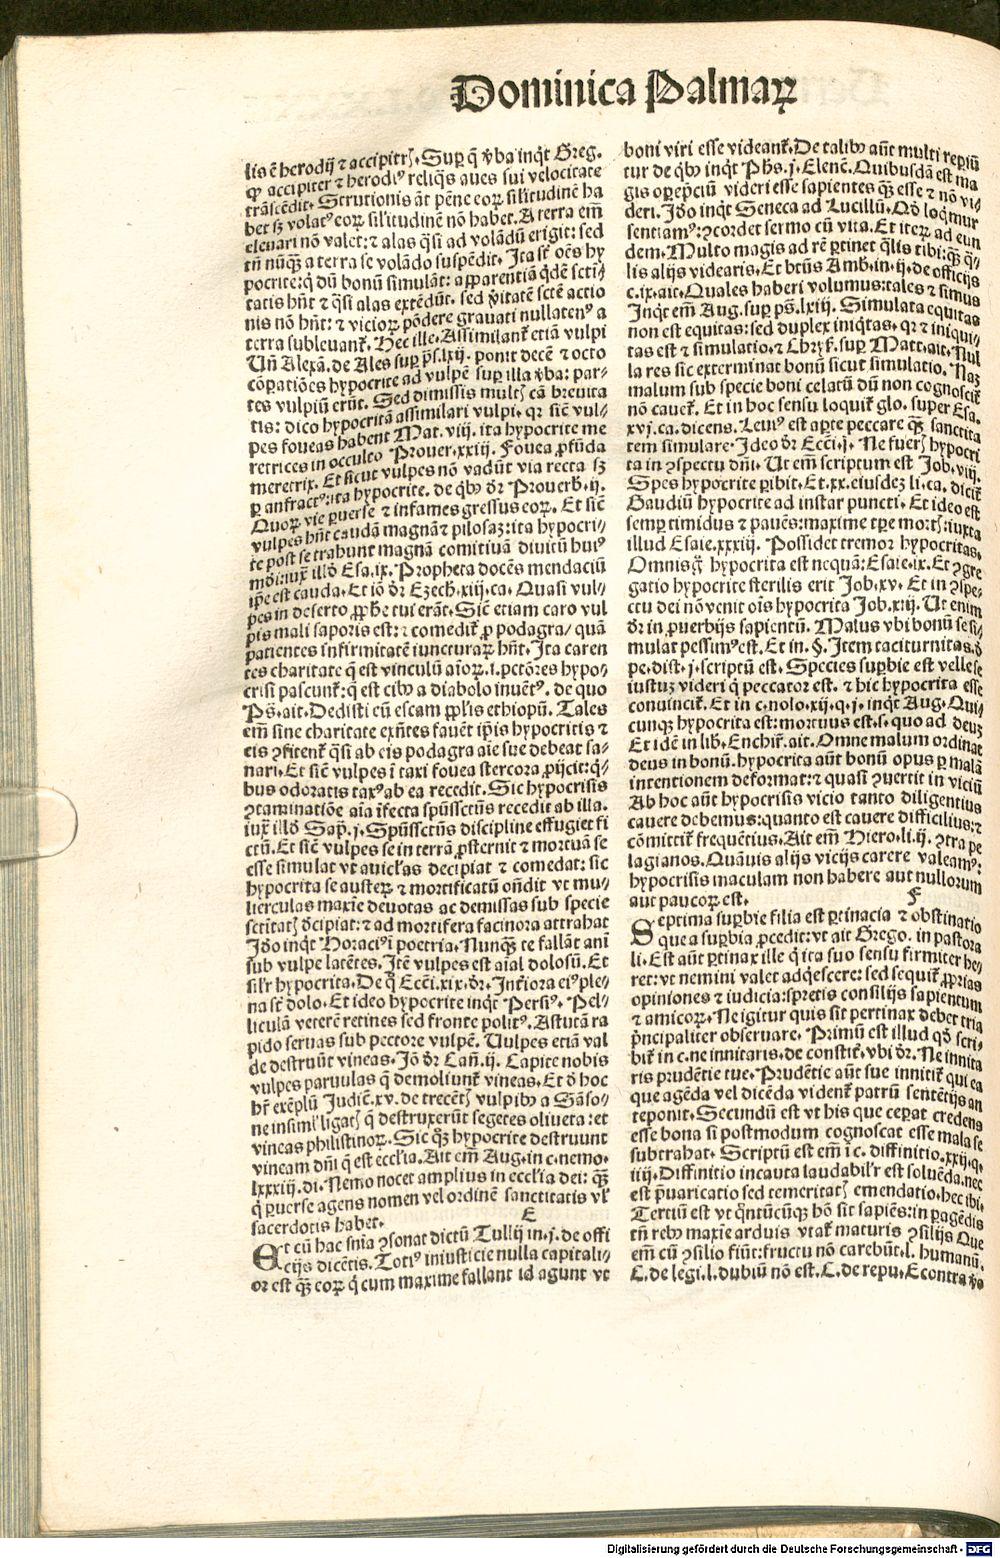 Dominica Palmaꝝ
lis ē herodij ⁊ accipitrꝭ. Suꝑ q̄ v̓ba inqͥt Greg.
ꝙ accipiter ⁊ herodiꝰ reliqͣs aues sui velocitate
trāscēdit. Strutionis āt pēne eoꝝ sil'itudinē ha
bet sꝫ volatꝰ eoꝝ sil'itudinē nō habet. A terra em̄
eleuari nō valet: ⁊ alas qͣsi ad volādū erigit: sed
tn̄ nūqͣꝫ a terra se volādo suspēdit. Ita st̄ oēs hy
pocrite: qͥ dū bonū simulāt: apparentiā qͥdē scti
tatis hn̄t ⁊ qͣsi alas extēdūt. sed v̓itatē scte̅ actio
nis nō hn̄t: ⁊ vicioꝝ pōdere grauati nullatenꝰ a
terra subleuant̄. Hec ille. Assimilant̄ etiā vulpi
Un̄ Alexā. de Ales suꝑ ps̄. lxij. ponit decē ⁊ octo
cōꝑatiōes hypocrite ad vulpē suꝑ illa v̓ba: par-
tes vulpiū erūt. Sed dimissis multꝭ cā breuita
tis: dico hypocritā assimilari vulpi. qꝛ sic̄ vul-
pes foueas habent Mat. viij. ita hypocrite me
retrices in occulto Prouer. xxiij. Fouea ꝓfūda
meretrix. Et sicut vulpes nō vadūt via recta sꝫ
ꝑ anfractꝰ: ita hypocrite. de qͥbꝰ dr̄ Prouerb. ij.
Quoꝝ vie ꝑuerse ⁊ infames gressus eoꝝ. Et sic̄
vulpes hn̄t caudā magnā ⁊ pilosaꝫ: ita hypocri-
te post se trahunt magnā comitiuā diuitū huiꝰ
mōi: iux̄ illd̓ Esa. ix. Propheta docēs mendaciū
ip̄e est cauda. Et iō dr̄ Ezech. xiij. ca. Quasi vul-
pes in deserto ꝓph̄e tui erāt. Sic̄ etiam caro vul
pis mali saporis est: ⁊ comedit̄ ꝓ podagra/ quā
patientes infirmitatē iuncturaꝝ hn̄t. Ita caren
tes charitate q̄ est vinculū aīoꝝ .i. pctōres hypo-
crisi pascunt̄: q̄ est cibꝰ a diabolo inuētꝰ. de quo
Ps̄. ait. Dedisti eū escam ꝓplis ethiopū. Tales
em̄ sine charitate exn̄tes fauēt ip̄is hypocritis ⁊
eis ꝯfitent̄ qͣsi ab eis podagra aīe sue debeat sa-
nari. Et sic̄ vulpes ī taxi fouea stercora ꝓijcit: qͥ-
bus odoratis taxꝰ ab ea recedit. Sic hypocrisis
ꝯtaminatiōe aīa īfecta spūssctūs recedit ab illa.
iux̄ illd̓ Sap̄. j. Spūssctūs discipline effugiet fi
ctū. Et sic̄ vulpes se in terrā ꝓsternit ⁊ mortuā se
esse simulat vt auicl'as decipiat ⁊ comedat: sic
hypocrita se austeꝝ ⁊ mortificatū on̄dit vt mu-
lierculas maxīe deuotas ac demissas sub specie
sctītatꝭ d̓cipiat: ⁊ ad mortifera facinora attrahat
Id̓o inqͥt Horaciꝰ ī poetria. Nunqͣꝫ te fallāt anī
sub vulpe latētes. Itē vulpes est aīal dolosū. Et
sil'r hypocrita. De qͦ Ecci. xix. dr̄. Intīora eiꝰ ple-
na st̄ dolo. Et ideo hypocrite inqͥt Persiꝰ. Pel-
liculā veterē retines sed fronte politꝰ. Astutā ra
pido seruas sub pectore vulpē. Uulpes etiā val
de destruūt vineas. Iō dr̄ Cañ. ij. Capite nobis
vulpes paruulas q̄ demoliunt̄ vineas. Et d̓ hoc
hr̄ exēplū Iudic̄. xv. de trecētꝭ vulpibꝰ a Sāso-
ne insimĺ ligatꝭ q̄ destruxerūt segetes oliueta: et
vineas philistinoꝝ. Sic qͦqꝫ hypocrite destruunt
vineam dn̄i q̄ est eccl'ia. Ait em̄ Aug. in c. nemo.
lxxxiij. di. Nemo nocet amplius in eccl'ia dei: qͣꝫ
qͥ ꝑuerse agens nomen vel ordinē sanctitatis vl̓
sacerdotis habet.
E
Et cū hac sn̄ia ꝯsonat dictū Tullij in. j. de offi
cijs dicētis. Totiꝰ iniusticie nulla capitali-
or est qͣꝫ eoꝝ qͥ cum maxime fallant id agunt vt
boni viri esse videant̄. De talibꝰ aūt multi reꝑiū
tur de qͥbꝰ inqͥt Ph̄s. j. Elenc̄. Quibusdā est ma
gis oꝑepciū videri esse sapientes qͣꝫ esse ⁊ nō vi-
deri. Id̓o inqͥt Seneca ad Lucillū. Qd̓ loqͥmur
sentiamꝰ: ꝯcordet sermo cū vita. Et iteꝝ ad eun
dem. Multo magis ad rē ꝑtinet qͣlis tibi: qͣꝫ qͣ-
lis alijs videaris. Et btūs Amb̄. in. ij. de officijs
c. ix. ait. Quales haberi volumus: tales ⁊ simus
Inqͥt em̄ Aug. suꝑ ps̄. lxiij. Simulata equitas
non est equitas: sed duplex iniqͥtas. qꝛ ⁊ iniqui-
tas est ⁊ simulatio. ⁊ Chryſ. suꝑ Matt. ait. Nul
la res sic exterminat bonū sicut simulatio. Naꝫ
malum sub specie boni celatū dū non cognoscit̄
nō cauet̄. Et in hoc sensu loquit̄ glo. super Esa.
xvj. ca. dicens. Leuiꝰ est aꝑte peccare qͣꝫ sanctita
tem simulare. Ideo dr̄ Ecci. j. Ne fuerꝭ hypocri
ta in ꝯspectu dn̄i. Ut em̄ scriptum est Iob. viij.
Spes hypocrite ꝑibit. Et. xx. eiusdeꝫ li. ca. dicit̄
Gaudiū hypocrite ad instar puncti. Et ideo est
semꝑ timidus ⁊ pauēs: maxime tꝑe mortꝭ: iuxta
illud Esaie. xxxiij. Possidet tremor hypocritas.
Omnis gͦ hypocrita est nequā: Esaie. ix. Et ꝯgre
gatio hypocrite sterilis erit Iob. xv. Et in ꝯspe-
ctu dei nō venit oīs hypocrita Iob. xiij. Ut enim
dr̄ in ꝓuerbijs sapientū. Malus vbi bonū se si-
mulat pessimꝰ est. Et in. §. Item taciturnitas. d̓
pe. dist. j. scriptū est. Species suꝑbie est velle se
iustuꝫ videri qͥ peccator est. ⁊ hic hypocrita esse
conuincit̄. Et in c. nolo. xij. q. j. inqͥt Aug. Qui-
cunqꝫ hypocrita est: mortuus est. s. quo ad deuꝫ
Et idē in lib̄. Enchir̄. ait. Omne malum ordinat
deus in bonū. hypocrita aūt bonū opus ꝑ malā
intentionem deformat: ⁊ quasi ꝯuertit in viciū
Ab hoc aūt hypocrisis vicio tanto diligentius
cauere debemus: quanto est cauere difficilius: ⁊
cōmittit̄ frequētius. Ait em̄ Hiero. li. ij. ꝯtra pe
lagianos. Quāuis alijs vicijs carere valeamꝰ:
hypocrisis maculam non habere aut nullorum
aut paucoꝝ est.
F
Septima suꝑbie filia est ꝑtinacia ⁊ obstinatio
que a suꝑbia ꝓcedit: vt ait Grego. in pastora
li. Est aūt ꝑtinax ille qͥ ita suo sensu firmiter he-
ret: vt nemini valet adqͥescere: sed sequit̄ ꝓprias
opiniones ⁊ iudicia: spretis consilijs sapientum
⁊ amicoꝝ. Ne igitur quis sit pertinax debet tria
pͥncipaliter obseruare. Primū est illud qd̓ scri-
bit̄ in c. ne innitaris. de constit̄. vbi dr̄. Ne innita
ris prudētie tue. Prudētie aūt sue innitit̄ qui ea
que agēda vel dicēda vident̄ patrū sentētijs an
teponit. Secundū est vt his que ceꝑat credens
esse bona si postmodum cognoscat esse mala se
subtrahat. Scriptū est em̄ ī c. diffinitio. xxij. q.
iiij. Diffinitio incauta laudabil'r est soluēda. nec
est p̄uaricatio sed temeritatꝭ emendatio. hec ibi.
Tertiū est vt qͣntūcūqꝫ hō sit sapiēs: in ꝑagēdis
tn̄ rebꝰ maxīe arduis vtat̄ maturis ꝯsilijs Que
em̄ cū ꝯsilio fiūt: fructu nō carebūt. l. humanū.
C. de legi. l. dubiū nō est. C. de repu. Econtra v̓o
Digitalisierung gefördert durch die Deutsche Forschungsgemeinschaft - DFG